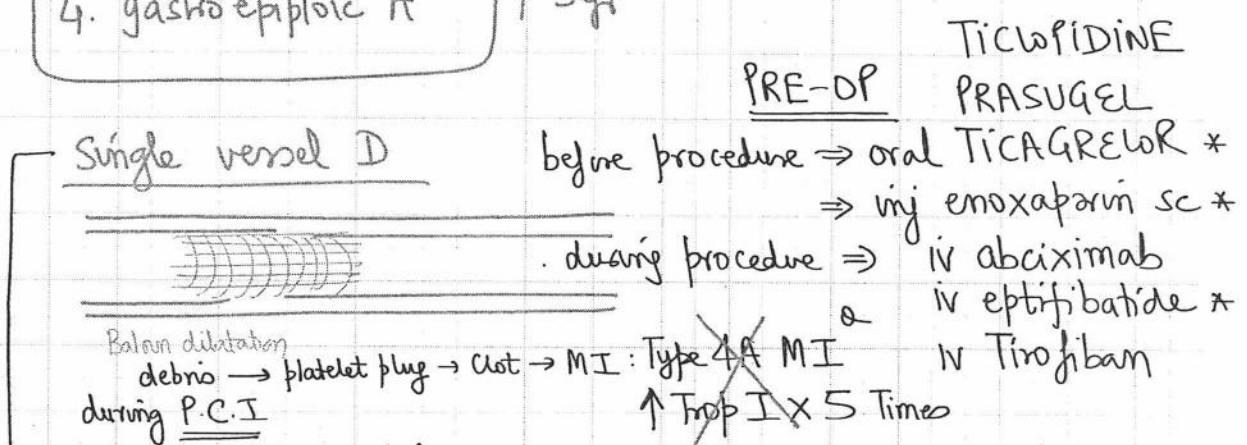 4. gastro epiploic A
TICLOPIDINE
PRE-OP PRASUGEL
Single vessel D
before procedure ⇒ oral TICAGRELOR *
⇒ inj enoxaparin sc *
during procedure ⇒ iv abciximab
iv eptifibatide *
iv Tirofiban
Baloun dilatation
debris → platelet plug → Clot → MI : Type 4A MI
during P.C.I
↑ Trop I X 5 Times